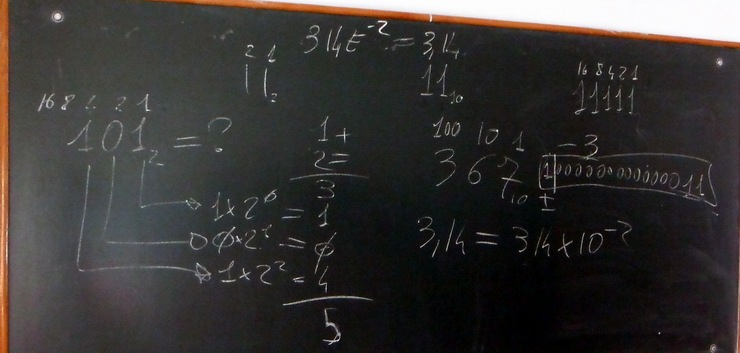 314E⁻² = 3,14
2 1
11₂
11₁₀
16 8 4 2 1
11111
16 8 4 2 1
101₂ = ?
1 × 2⁰ = 1
0 × 2¹ = 0
1 × 2² = 4
5
1 +
2 =
3
100 10 1
3 6 7₁₀
- 3
1 0000000000000 11
±
3,14 = 314 × 10⁻²